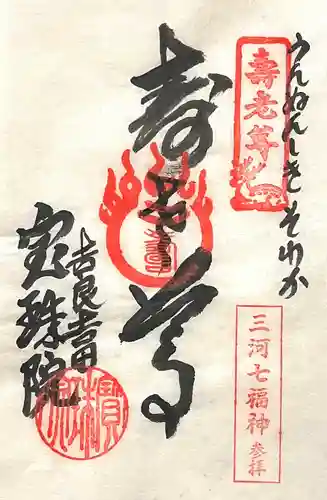 うんぬんしきそわか
壽老尊
壽老尊
三河七福神
参拝
吉良吉田
宝珠院